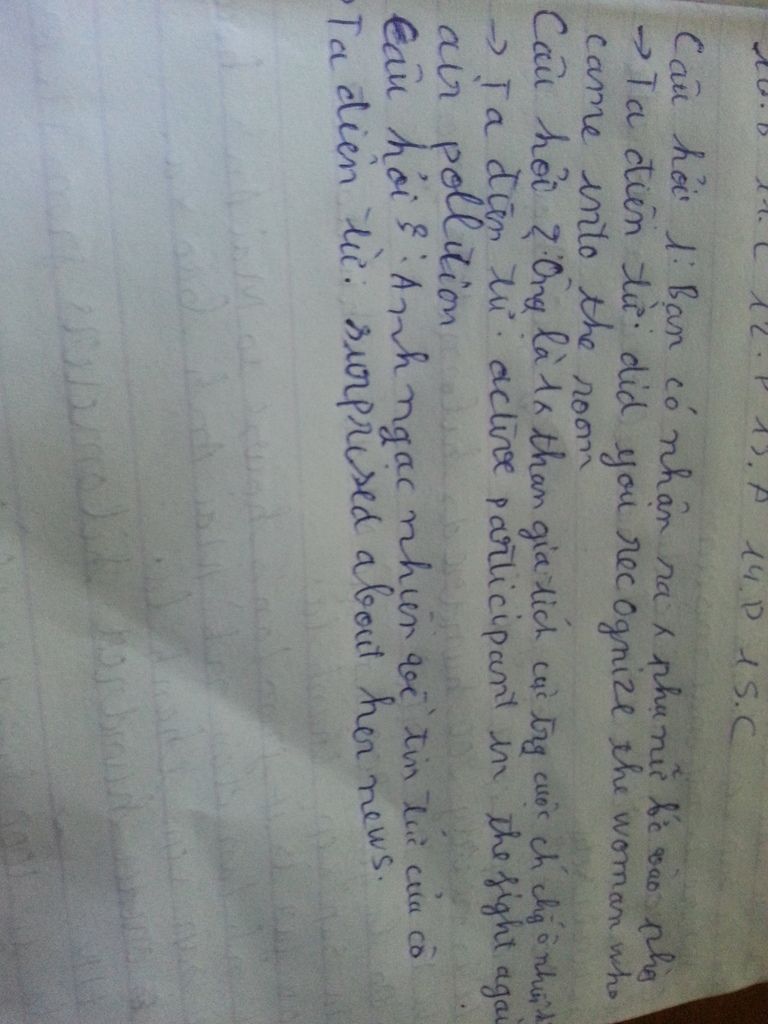 10.B 11.C 12.D 13.A 14.D 15.C
Câu hỏi 1: Bạn có nhận ra phụ nữ vào
→ Ta điền từ: did you recognize the woman who
came into the room
Câu hỏi 2: Ông là 1 tham gia tích cực trg cuộc ch chg ô nhiễm
→ Ta điền từ: active participant in the fight agai
air pollution
Câu hỏi 3: Anh ngạc nhiên về tin tức của cô
→ Ta điền từ: surprised about her news.